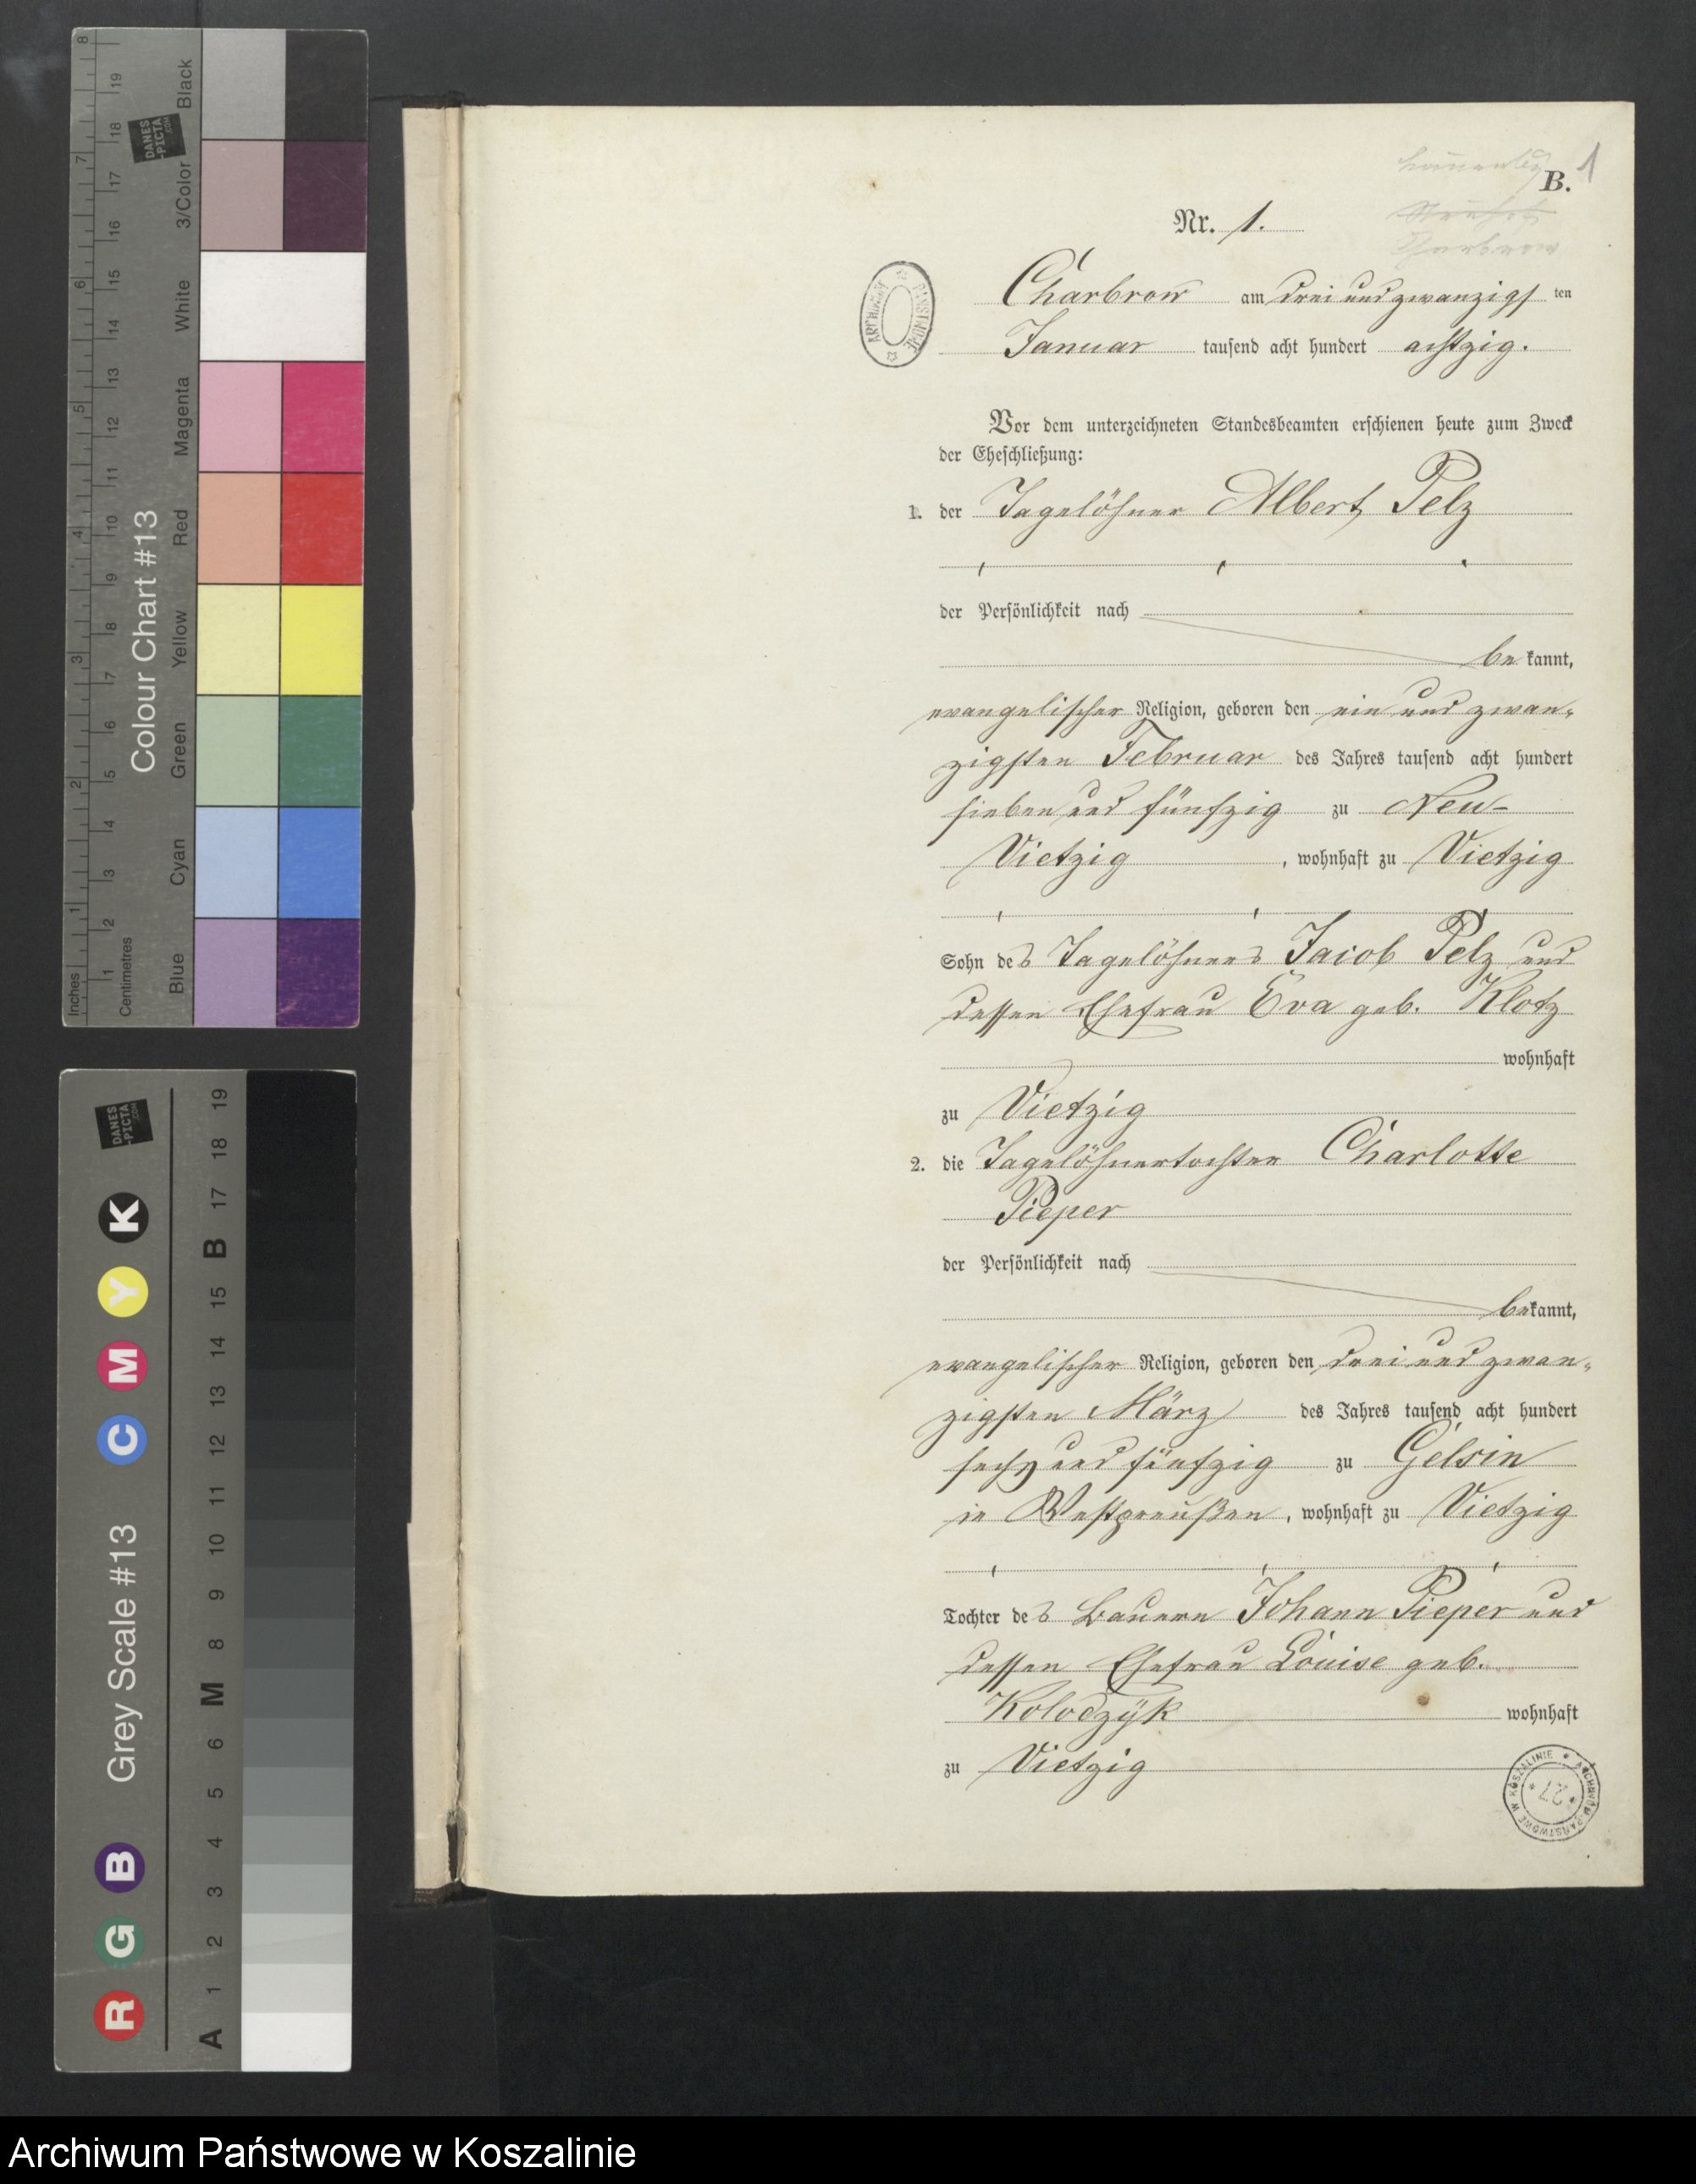 8
7
6
5
4
3
2
1
Inches
19
18
17
16
15
14
13
12
11
10
9
8
7
6
5
4
3
2
1
Centimetres
DANES
-PICTA
.COM
Colour Chart #13
Black
3/Color
White
Magenta
Red
Yellow
Green
Cyan
Blue
DANES
-PICTA
.COM
Grey Scale #13
K
Y
M
C
B
G
R
19
18
17
B
15
14
13
12
11
10
9
8
M
6
5
4
3
2
1
A
1
B.
Nr. 1.
Charbrow am drei und zwanzigsten
Januar tausend acht hundert achtzig.
ARCHIWUM PAŃSTWOWE
Vor dem unterzeichneten Standesbeamten erschienen heute zum Zweck
der Eheschließung:
1. der Tagelöhner Albert Pelz
der Persönlichkeit nach
bekannt,
evangelischer Religion, geboren den ein und zwan-
zigsten Februar des Jahres tausend acht hundert
sieben und fünfzig zu Neu-
Vietzig, wohnhaft zu Vietzig
Sohn des Tagelöhners Jacob Pelz und
dessen Ehefrau Eva geb. Klotz
wohnhaft
zu Vietzig
2. die Tagelöhnertochter Charlotte
Pieper
der Persönlichkeit nach
bekannt,
evangelischer Religion, geboren den drei und zwan-
zigsten März des Jahres tausend acht hundert
sechs und fünfzig zu Gelsin
in Westpreußen, wohnhaft zu Vietzig
Tochter des Bauern Johann Pieper und
dessen Ehefrau Louise geb.
Kolodzÿk wohnhaft
zu Vietzig
ARCHIWUM PAŃSTWOWE W KOSZALINIE
* 27 *
Archiwum Państwowe w Koszalinie